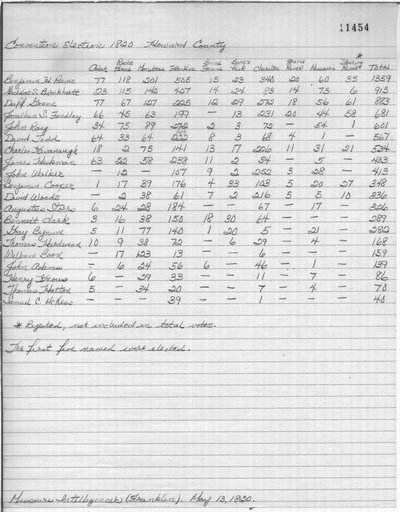 11454
Convention Election 1820 Howard County
Total
Benjamin H. Reeves 77 118 201 505 15 23 340 20 60 35 1359
Nicholas S. Burckhartt 23 115 142 427 14 24 83 14 75 6 915
Duff Green 77 67 127 225 12 29 272 18 56 61 883
Jonathan S. Findlay 66 45 63 199 — 13 231 20 44 58 681
John Ray 34 75 89 272 2 3 72 — 54 1 601
David Todd 64 33 64 222 8 3 68 4 1 — 567
Charles 18 2 75 141 13 17 226 11 31 21 534
James Hickman 63 22 58 253 11 2 34 — 5 — 433
John Walker — 12 — 107 9 2 252 3 28 — 413
Benjamin Cooper 1 17 39 176 4 33 103 5 20 27 348
David Woods — 2 38 61 7 2 216 5 5 10 336
Augustus Storrs 6 24 28 184 — — 67 — 17 — 326
Bennett Clark 3 16 38 150 18 30 64 — — — 289
Gray Bynum 5 11 77 140 1 20 5 — 21 — 282
Thomas Hardeman 10 9 38 72 — 6 29 — 4 — 168
William Boon — 17 123 13 — — 6 — — — 159
John — 6 24 56 6 — 46 — 1 — 139
Henry 6 — 29 33 — — 11 — 7 — 86
Thomas Hatton 5 — 34 20 — — 7 — 4 — 70
Samuel C. — — — 39 — — 1 — — — 40
* Rejected, not included in total votes.
The first five named were elected.
Missouri Intelligencer (Franklin). May 13, 1820.